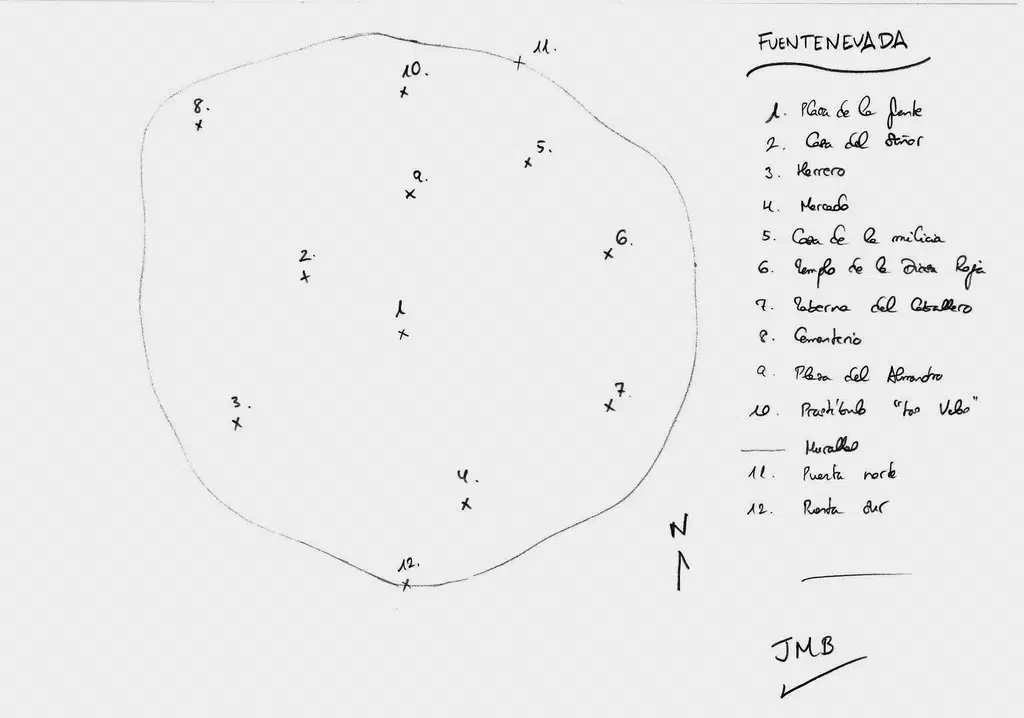 11.
10.
8.
5.
9.
6.
2.
1
7.
3.
4.
12.
N
FUENTENEVADA
1. Plaza de la fuente
2. Casa del Señor
3. Herrero
4. Mercado
5. Casa de la milicia
6. Templo de la Diosa Roja
7. Taberna del Caballero
8. Cementerio
9. Plaza del Almendro
10. Prostíbulo "Los Velos"
Murallas
11. Puerta norte
12. Puerta sur
JMB